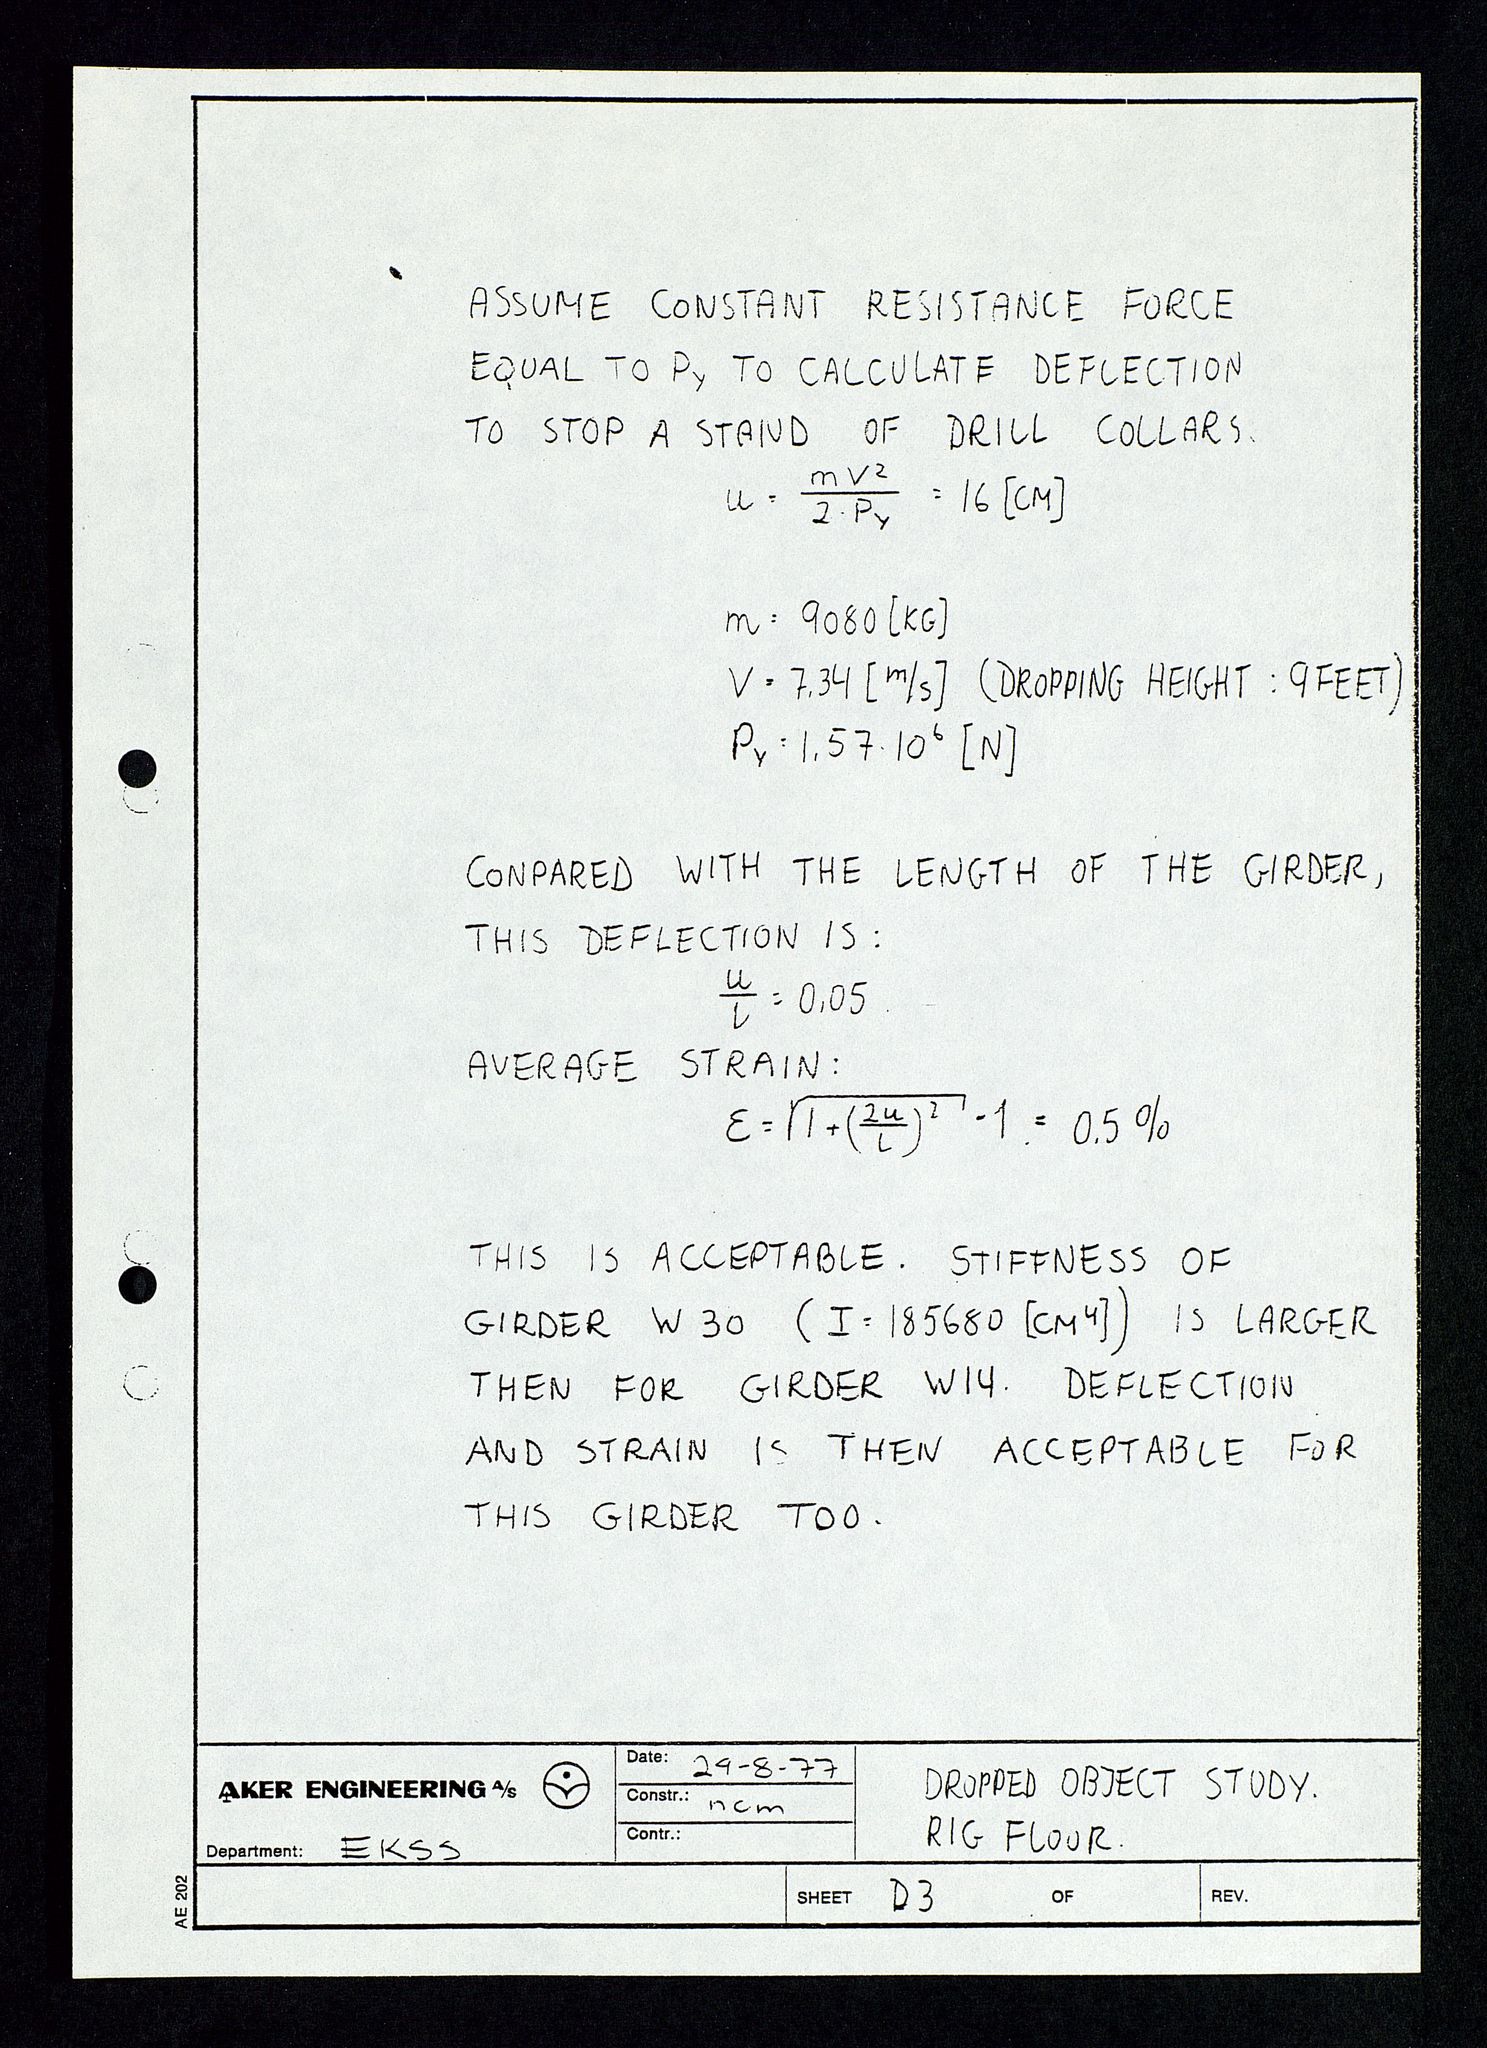 ASSUME CONSTANT RESISTANCE FORCE
EQUAL TO Py TO CALCULATE DEFLECTION
TO STOP A STAND OF DRILL COLLARS.
u = mV²/2·Py = 16 [CM]
m = 9080 [KG]
V = 7.34 [m/s] (DROPPING HEIGHT : 9 FEET)
Py = 1.57·10⁶ [N]
CONPARED WITH THE LENGTH OF THE GIRDER,
THIS DEFLECTION IS:
u/L = 0,05
AVERAGE STRAIN:
ε = √(1+(2u/L)²) - 1 = 0.5 %
THIS IS ACCEPTABLE. STIFFNESS OF
GIRDER W 30 (I = 185680 [CM⁴]) IS LARGER
THEN FOR GIRDER W14. DEFLECTION
AND STRAIN IS THEN ACCEPTABLE FOR
THIS GIRDER TOO.
AKER ENGINEERING A/S
Department: EKSS
Date: 29-8-77
Constr.: ncm
Contr.:
DROPPED OBJECT STUDY.
RIG FLOUR.
SHEET D3 OF
REV.
AE 202